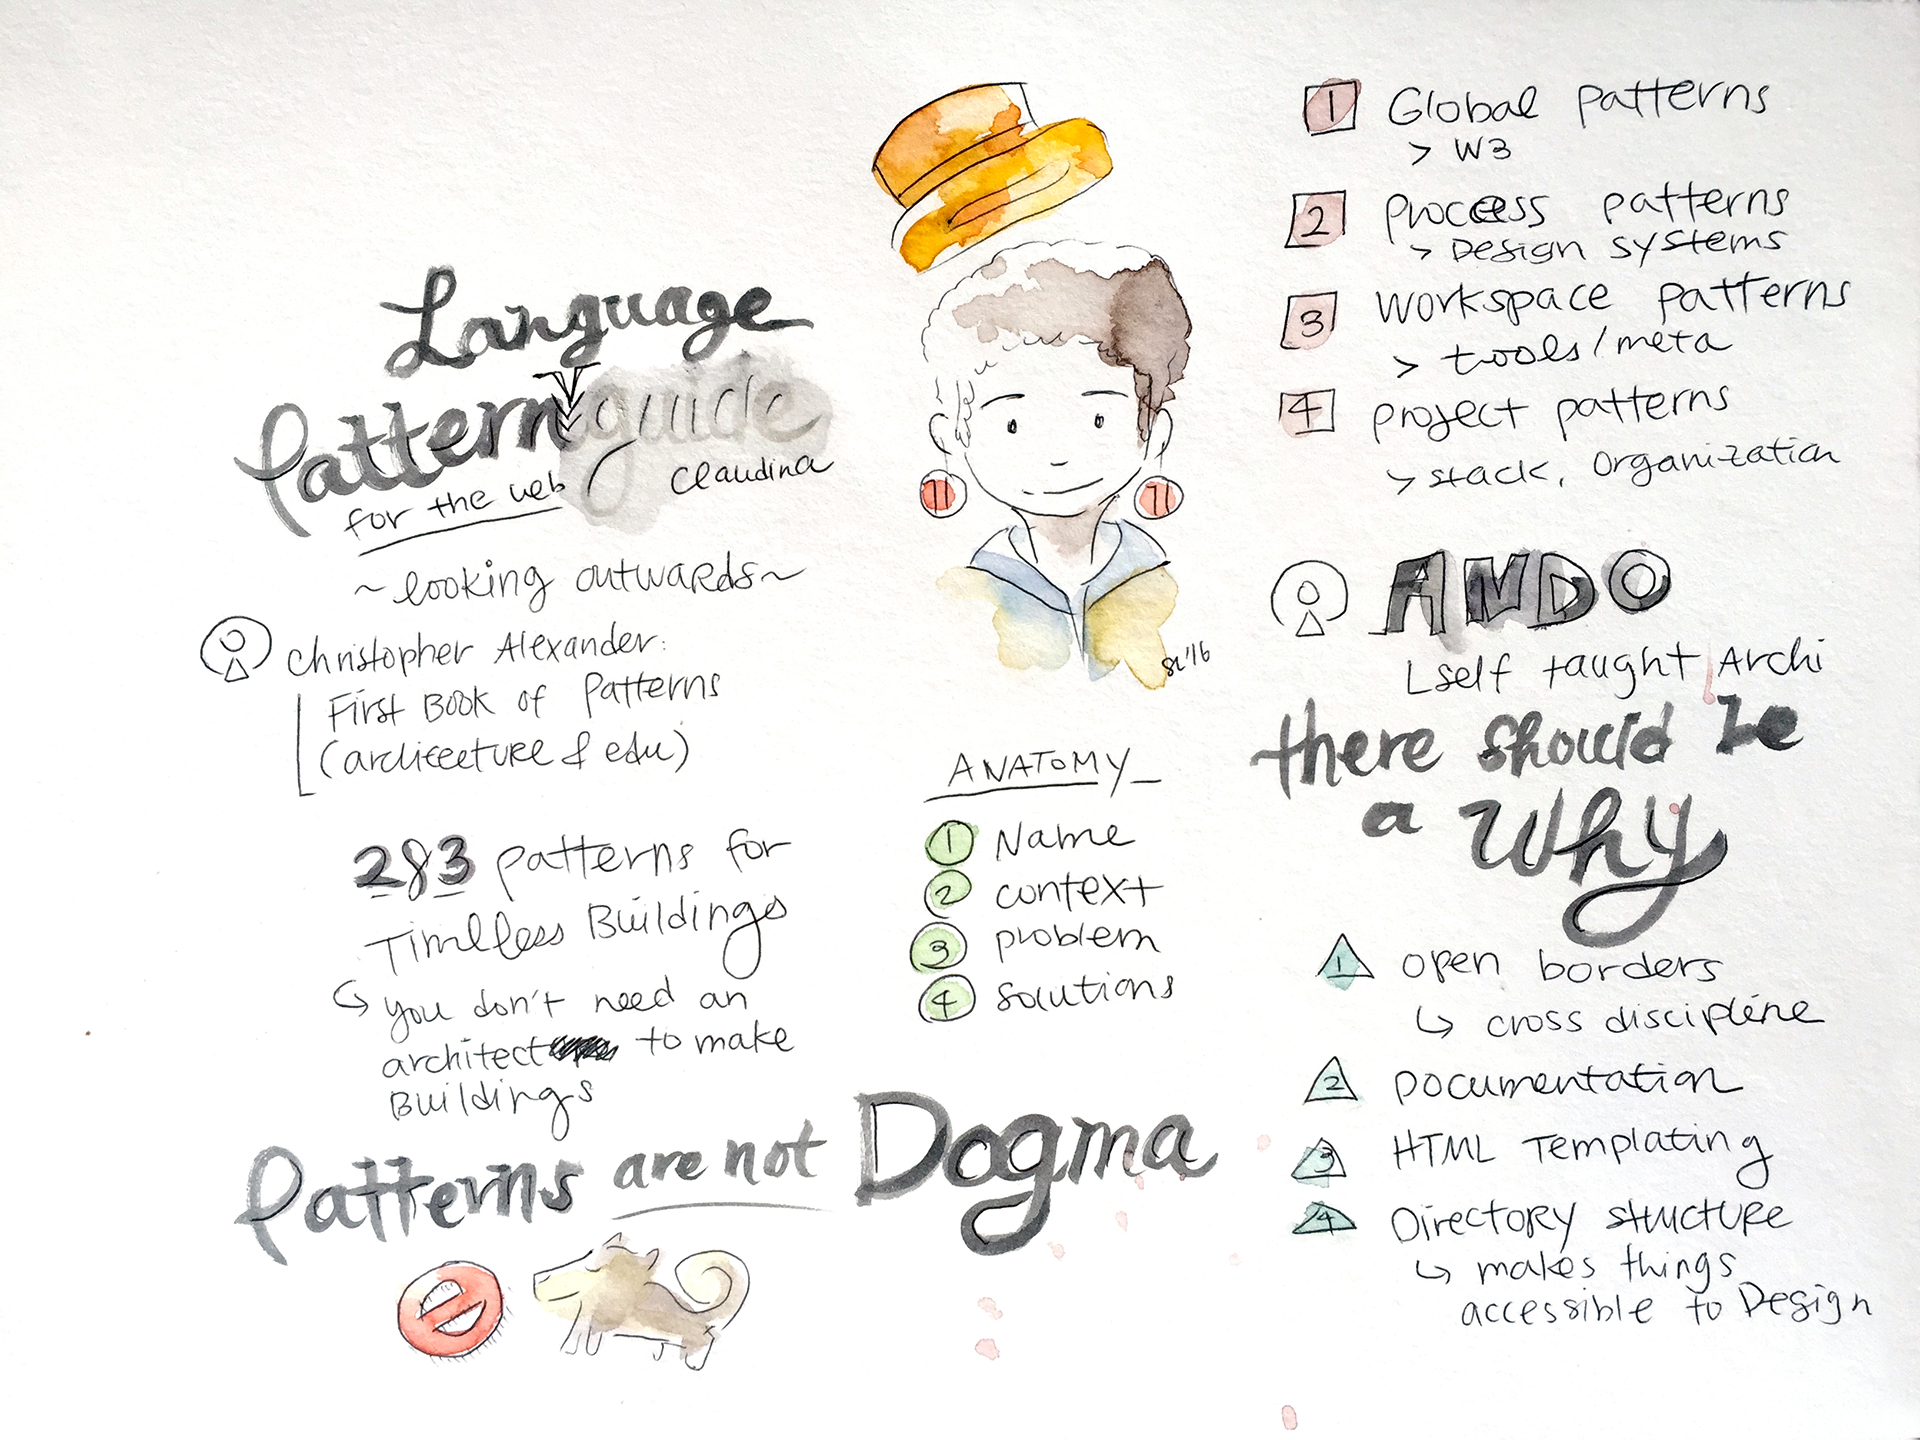 Language
Pattern guide
for the web
Claudina
~looking outwards~
Christopher Alexander:
First Book of Patterns
(architecture & edu)
283 patterns for
Timeless Buildings
↳ you don't need an
architect to make
Buildings
Patterns are not Dogma
sl'16
ANATOMY_
1 Name
2 context
3 problem
4 solutions
1 Global patterns
> W3
2 process patterns
> Design systems
3 workspace patterns
> tools/meta
4 project patterns
> stack, organization
ANDO
self taught Archi
there should be
a Why
1 open borders
↳ cross discipline
2 Documentation
3 HTML Templating
4 Directory structure
↳ makes things
accessible to Design